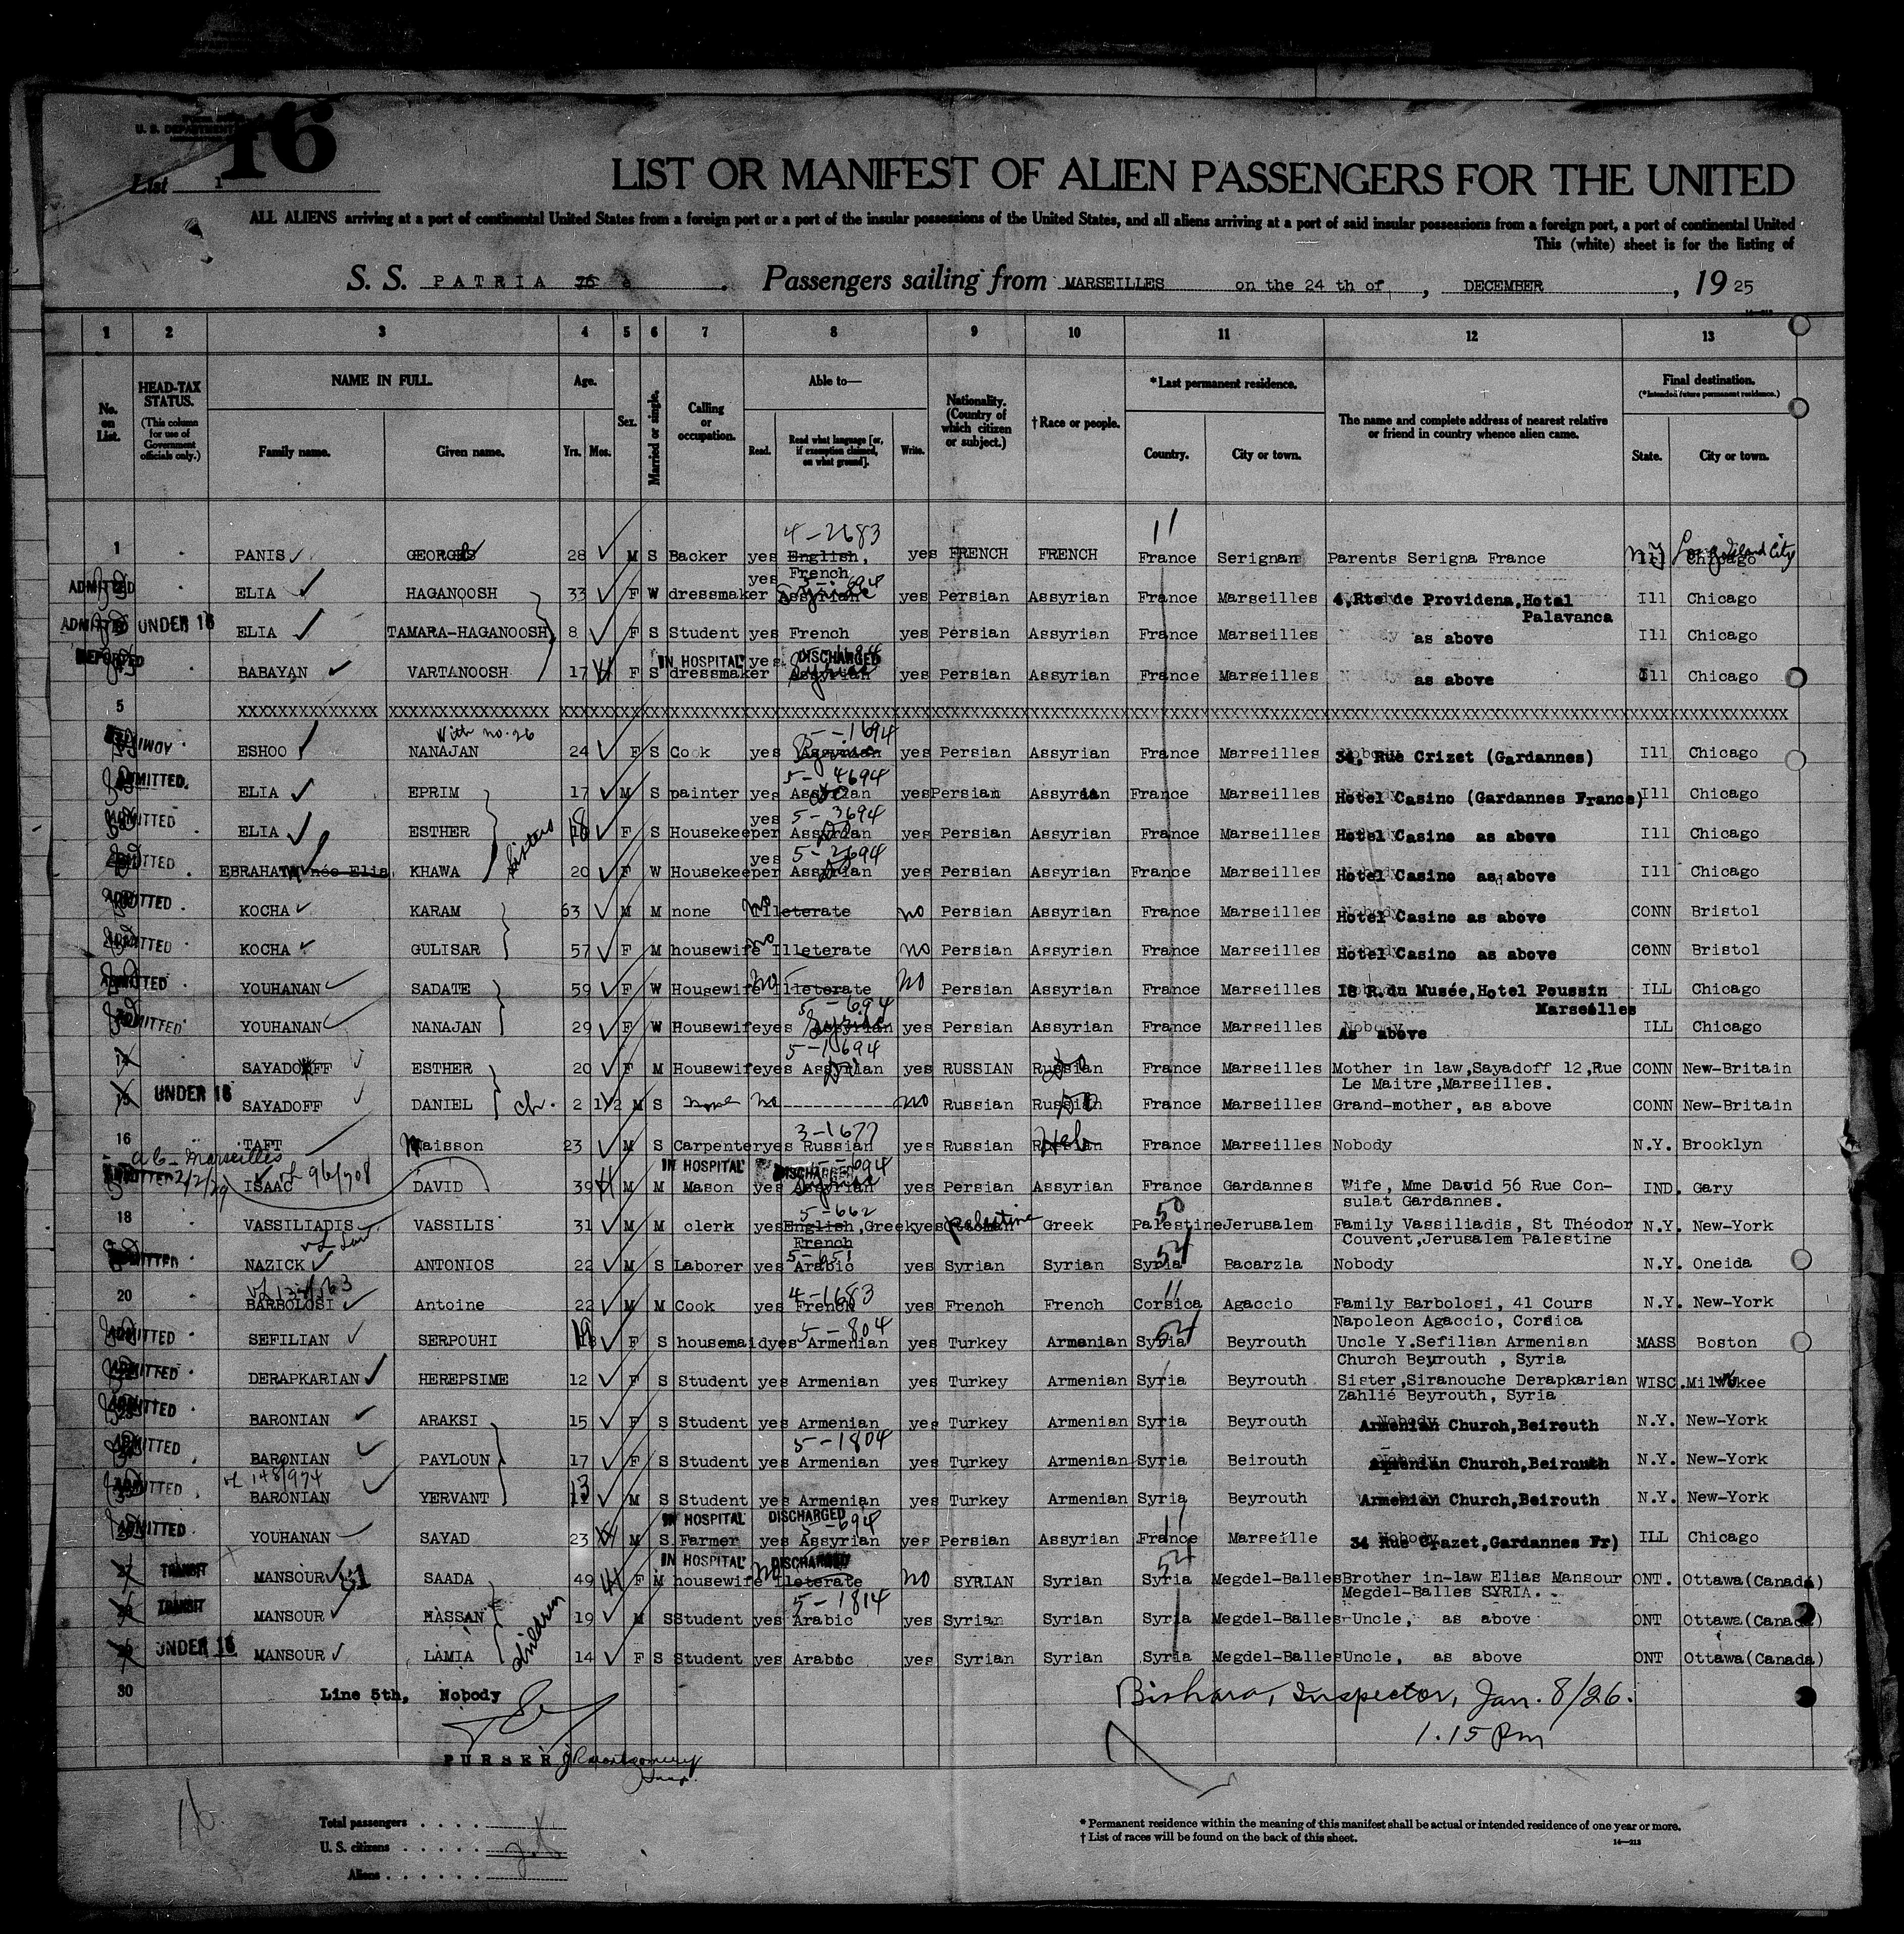 U. S. DEPARTMENT
16
List 1
LIST OR MANIFEST OF ALIEN PASSENGERS FOR THE UNITED
ALL ALIENS arriving at a port of continental United States from a foreign port or a port of the insular possessions of the United States, and all aliens arriving at a port of said insular possessions from a foreign port, a port of continental United
This (white) sheet is for the listing of
S. S. PATRIA Passengers sailing from MARSEILLES on the 24 th of, DECEMBER, 19 25
1 2 3 4 5 6 7 8 9 10 11 12 13
No. on List. HEAD-TAX STATUS. (This column for use of Government officials only.) NAME IN FULL. Family name. Given name. Age. Yrs. Mos. Sex. Married or single. Calling or occupation. Able to— Read. Read what language [or, if exemption claimed, on what ground]. Write. Nationality. (Country of which citizen or subject.) †Race or people. *Last permanent residence. Country. City or town. The name and complete address of nearest relative or friend in country whence alien came. Final destination. (*Intended future permanent residence.) State. City or town.
4-2683 11
1 PANIS GEORGES 28 M S Backer yes English, French yes FRENCH FRENCH France Serignan Parents Serigna France NY Long Island City Chicago
ADMITTED ELIA HAGANOOSH 33 F W dressmaker yes Assyrian yes Persian Assyrian France Marseilles 4,Rte de Providena,Hotel Palavanca Ill Chicago
ADMITTED UNDER 16 ELIA TAMARA-HAGANOOSH 8 F S Student yes French yes Persian Assyrian France Marseilles as above Ill Chicago
DEPORTED BABAYAN VARTANOOSH 17 F S IN HOSPITAL dressmaker yes DISCHARGED Assyrian yes Persian Assyrian France Marseilles as above Ill Chicago
5 XXXXXXXXXXXXXX XXXXXXXXXXXXXXXX
With no. 26 5-1694
ESHOO NANAJAN 24 F S Cook yes Assyrian yes Persian Assyrian France Marseilles 34, Rue Crizet (Gardannes) Ill Chicago
5-4694
ADMITTED. ELIA EPRIM 17 M S painter yes Assyrian yes Persian Assyrian France Marseilles Hotel Casino (Gardannes France) Ill Chicago
5-3694
ADMITTED ELIA ESTHER 18 F S Housekeeper yes Assyrian yes Persian Assyrian France Marseilles Hotel Casino as above Ill Chicago
Sisters 5-2694
ADMITTED EBRAHAM née Elia KHAWA 20 F W Housekeeper yes Assyrian yes Persian Assyrian France Marseilles Hotel Casino as above Ill Chicago
ADMITTED KOCHA KARAM 63 M M none no Illeterate no Persian Assyrian France Marseilles Hotel Casino as above CONN Bristol
ADMITTED KOCHA GULISAR 57 F M housewife no Illeterate no Persian Assyrian France Marseilles Hotel Casino as above CONN Bristol
ADMITTED YOUHANAN SADATE 59 F W Housewife no Illeterate no Persian Assyrian France Marseilles 18 R.du Musée,Hotel Poussin Marseilles ILL Chicago
5-694
ADMITTED YOUHANAN NANAJAN 29 F W Housewife yes Assyrian yes Persian Assyrian France Marseilles As above ILL Chicago
5-1694
14 SAYADOFF ESTHER 20 F M Housewife yes Assyrian yes RUSSIAN Russian France Marseilles Mother in law,Sayadoff 12,Rue Le Maitre,Marseilles. CONN New-Britain
15 UNDER 16 SAYADOFF DANIEL ch. 2 1/2 M S none no no Russian Russian France Marseilles Grand-mother, as above CONN New-Britain
3-1677
16 TAFT Maisson 23 M S Carpenter yes Russian yes Russian Heb France Marseilles Nobody N.Y. Brooklyn
Marseilles 96/708 IN HOSPITAL DISCHARGED 694
ISAAC DAVID 39 M M Mason yes Assyrian yes Persian Assyrian France Gardannes Wife, Mme David 56 Rue Consulat Gardannes. IND. Gary
5-662 50
18 VASSILIADIS VASSILIS 31 M M clerk yes English,Greek French yes Palestine Greek Palestine Jerusalem Family Vassiliadis, St Théodor Couvent,Jerusalem Palestine N.Y. New-York
5-651 54
ADMITTED NAZICK ANTONIOS 22 M S Laborer yes Arabic yes Syrian Syrian Syria Bacarzla Nobody N.Y. Oneida
4-1683 11
20 BARBOLOSI Antoine 22 M M Cook yes French yes French French Corsica Agaccio Family Barbolosi, 41 Cours Napoleon Agaccio, Cordica N.Y. New-York
5-804 54
ADMITTED SEFILIAN SERPOUHI 19 F S housemaid yes Armenian yes Turkey Armenian Syria Beyrouth Uncle Y.Sefilian Armenian Church Beyrouth , Syria MASS Boston
ADMITTED DERAPKARIAN HEREPSIME 12 F S Student yes Armenian yes Turkey Armenian Syria Beyrouth Sister,Siranouche Derapkarian Zahlié Beyrouth, Syria WISC. Milwokee
ADMITTED BARONIAN ARAKSI 15 F S Student yes Armenian yes Turkey Armenian Syria Beyrouth Armenian Church,Beirouth N.Y. New-York
5-1804
ADMITTED BARONIAN PAYLOUN 17 F S Student yes Armenian yes Turkey Armenian Syria Beirouth Armenian Church,Beirouth N.Y. New-York
148/974
ADMITTED BARONIAN YERVANT 13 M S Student yes Armenian yes Turkey Armenian Syria Beyrouth Armenian Church,Beirouth N.Y. New-York
IN HOSPITAL DISCHARGED 5-694
ADMITTED YOUHANAN SAYAD 23 M S Farmer yes Assyrian yes Persian Assyrian France Marseille 34 Rue Crazet,Gardannes Fr) ILL Chicago
IN HOSPITAL DISCHARGED 54
27 TRANSIT MANSOUR SAADA 49 F M housewife no Illeterate no SYRIAN Syrian Syria Megdel-Balles Brother in-law Elias Mansour Megdel-Balles SYRIA. ONT. Ottawa(Canada)
5-1814
TRANSIT MANSOUR HASSAN children 19 M S Student yes Arabic yes Syrian Syrian Syria Megdel-Balles Uncle, as above ONT Ottawa(Canada)
UNDER 16 MANSOUR LAMIA 14 F S Student yes Arabic yes Syrian Syrian Syria Megdel-Balles Uncle, as above ONT Ottawa(Canada)
30 Line 5th, Nobody Bishara, Inspector, Jan. 8/26.
1.15 Pm
PURSER
16
Total passengers
U. S. citizens
Aliens
* Permanent residence within the meaning of this manifest shall be actual or intended residence of one year or more.
† List of races will be found on the back of this sheet.
14—213